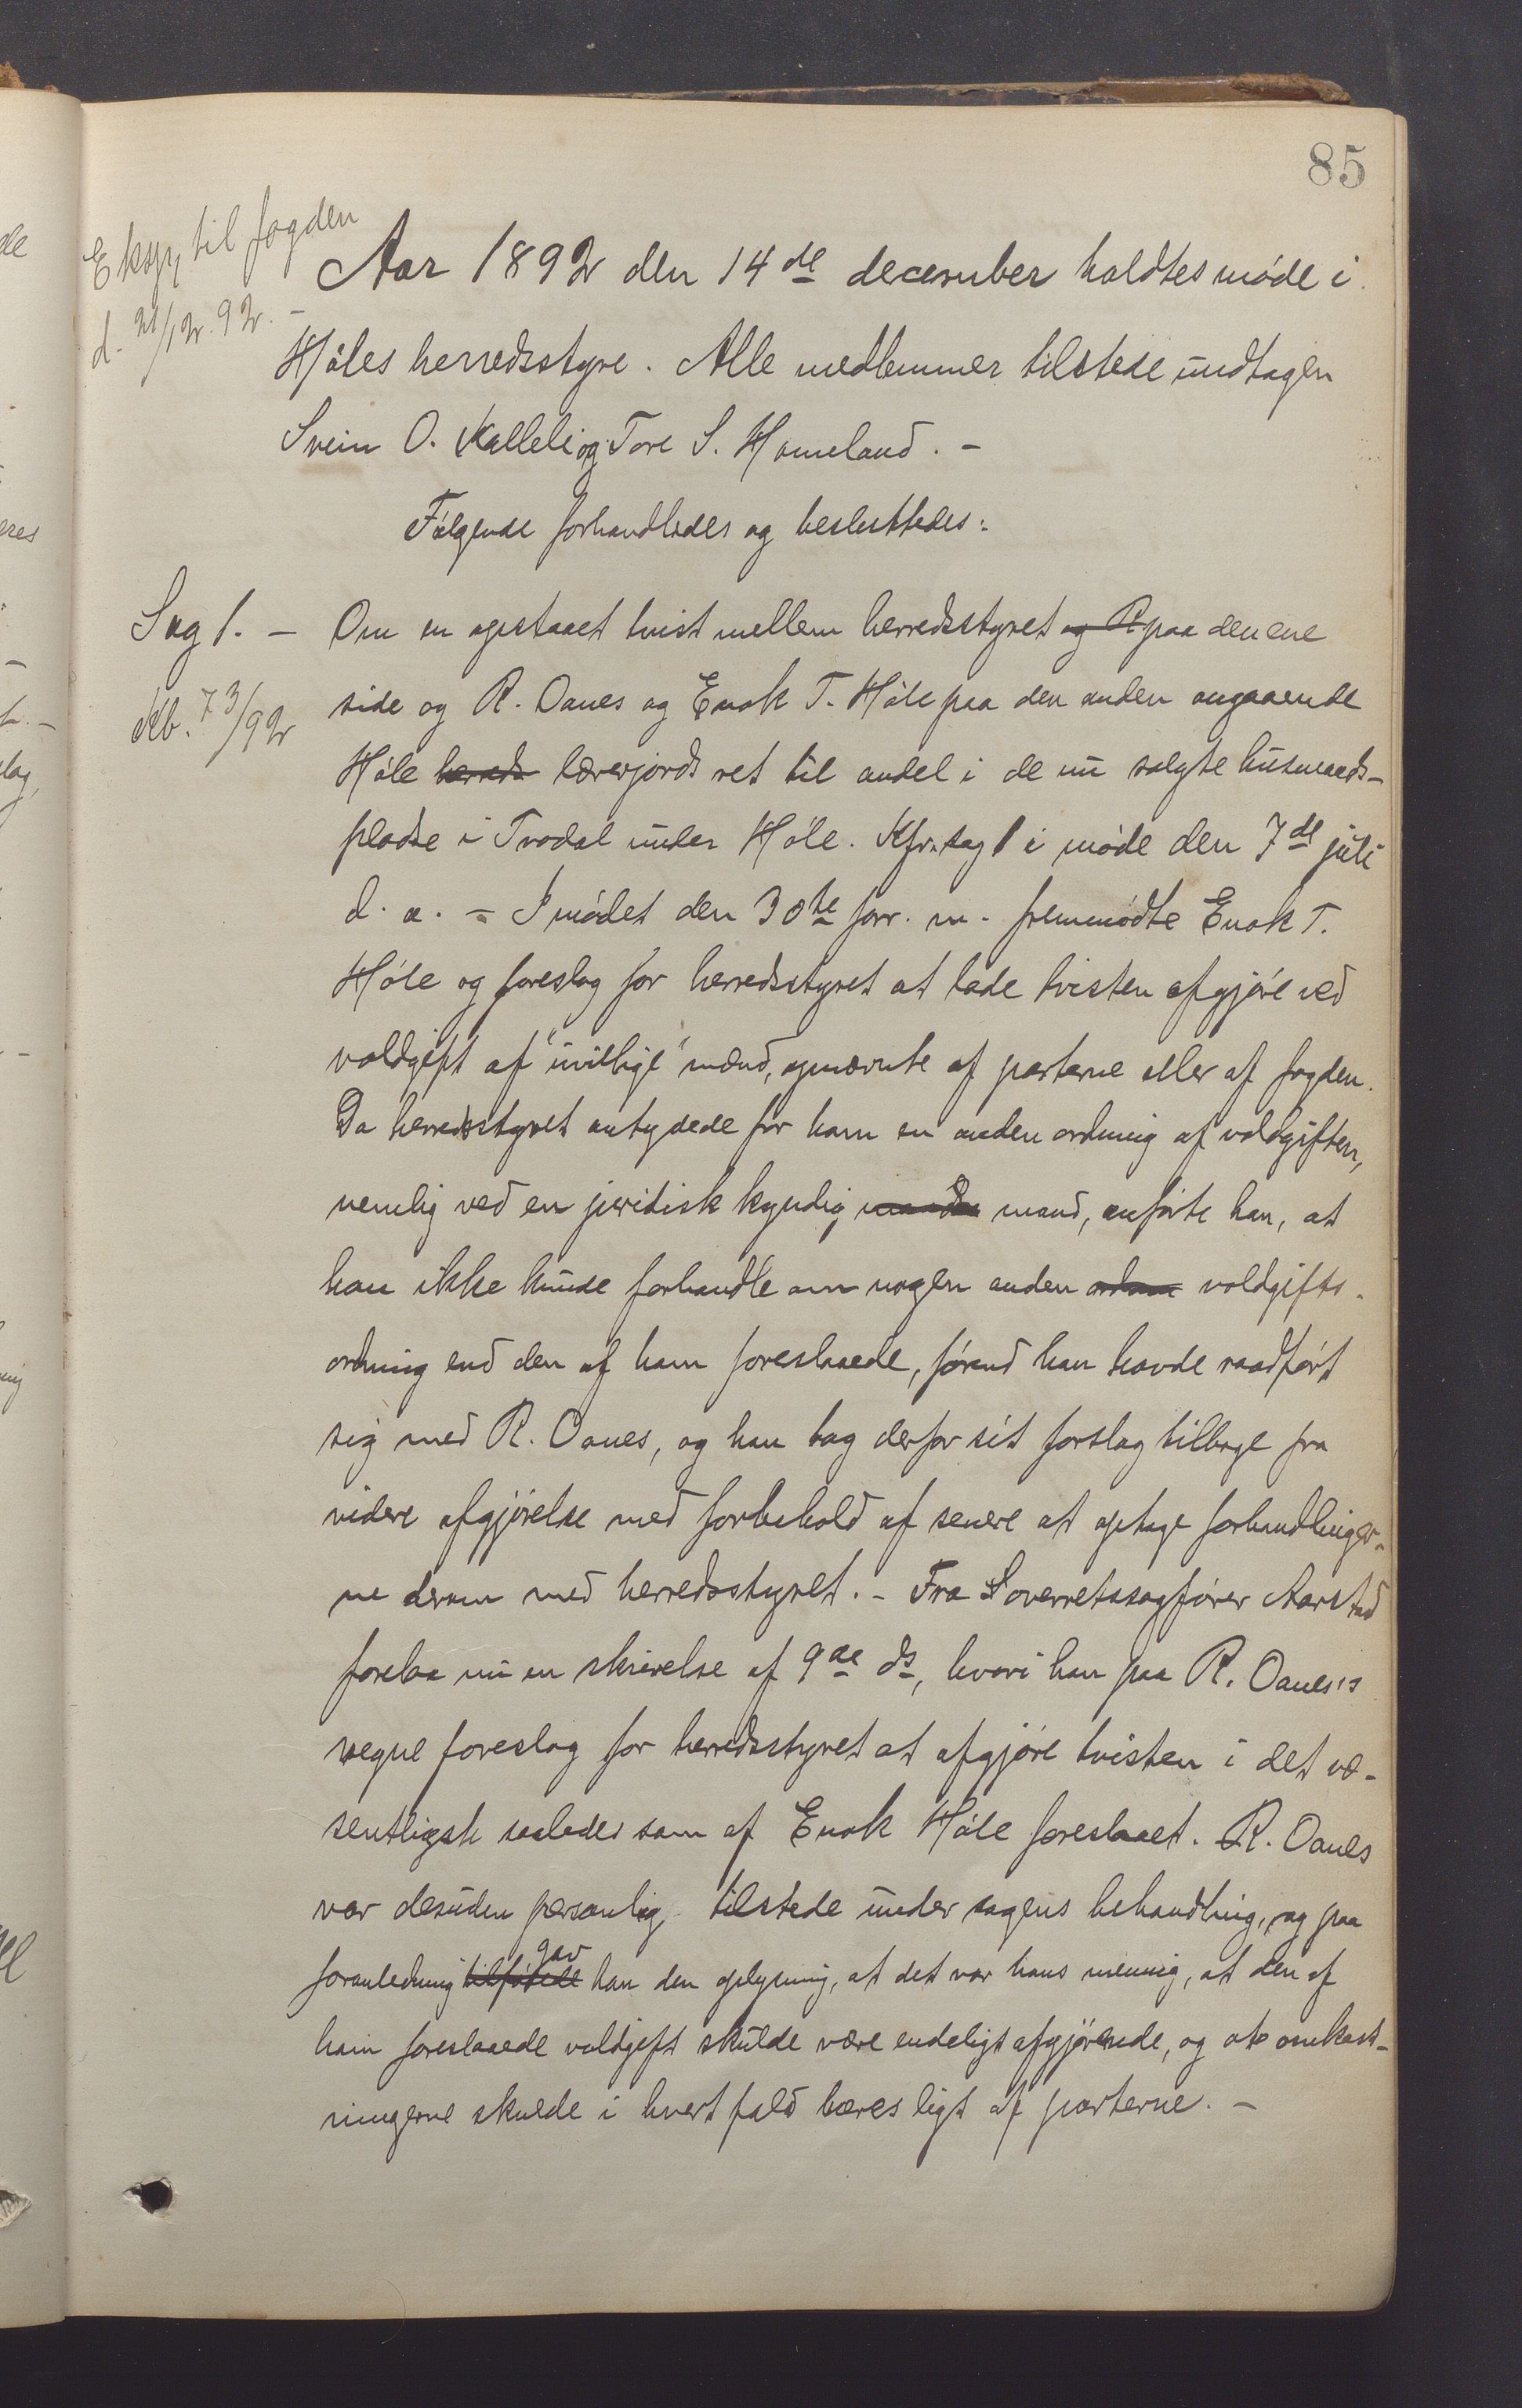 85
Eksp. til fogden
d. 21/12. 92. -
Aar 1892 den 14de december holdtes møde i
Høles herredsstyre. Alle medlemmer tilstede undtagen
Svein O. Kalleli og Tore S. Homeland. -
Følgende forhandledes og besluttedes:
Sag 1. -
Kb. 73/92
Om en opstaaet tvist mellem herredsstyret og R paa den ene
side og R. Oanes og Enok T. Høle paa den anden angaaende
Høle lærerjords ret til andel i de nu solgte husmands-
pladse i Tvodal under Høle. Kfr. sag 1 i møde den 7de juli
d. a. - I mødet den 30te forr. m. fremmødte Enok T.
Høle og foreslog for herredsstyret at lade tvisten afgjøre ved
voldgift af "uvillige" mænd, opnævnte af parterne eller af fogden.
Da herredsstyret antydede for ham en anden ordning af voldgiften,
nemlig ved en juridisk kyndig mand, anførte han, at
han ikke kunde forhandle om nogen anden voldgifts-
ordning end den af ham foreslaaede, førend han havde raadført
sig med R. Oanes, og han tog derfor sit forslag tilbage fra
videre afgjørelse med forbehold af senere at optage forhandlinger-
ne derom med herredsstyret. - Fra Overretssagfører Aarstad
forelaa nu en skrivelse af 9de ds, hvori han paa R. Oanes's
vegne foreslog for herredsstyret at afgjøre tvisten i det væ-
sentligste saaledes som af Enok Høle foreslaaet. R. Oanes
var desuden personlig tilstede under sagens behandling, og paa
foranledning tilføiede gav han den oplysning, at det var hans mening, at den af
ham foreslaaede voldgift skulde være endeligt afgjørende, og at omkost-
ningerne skulde i hvert fald bæres ligt af parterne. -